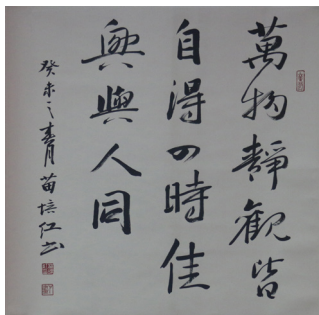 萬物靜観皆
自得四時佳
興與人同
癸未之春月苗培红书